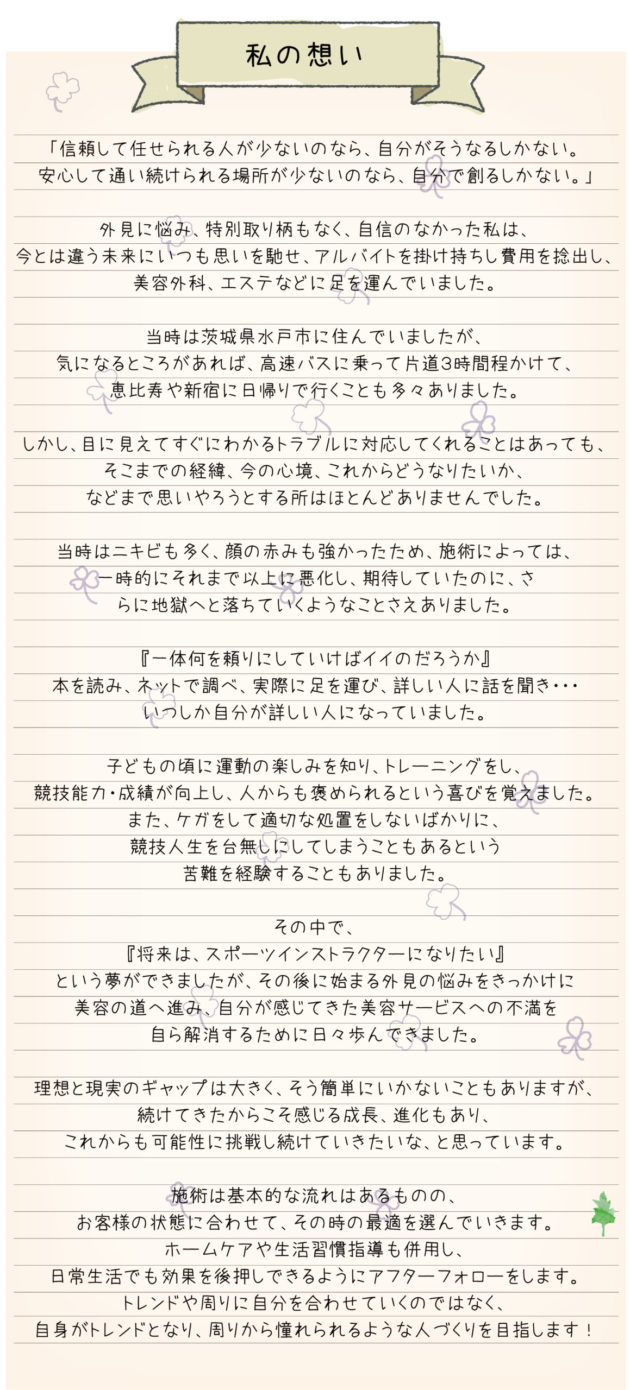 私の想い
「信頼して任せられる人が少ないのなら、自分がそうなるしかない。
安心して通い続けられる場所が少ないのなら、自分で創るしかない。」
外見に悩み、特別取り柄もなく、自信のなかった私は、
今とは違う未来にいつも思いを馳せ、アルバイトを掛け持ちし費用を捻出し、
美容外科、エステなどに足を運んでいました。
当時は茨城県水戸市に住んでいましたが、
気になるところがあれば、高速バスに乗って片道3時間程かけて、
恵比寿や新宿に日帰りで行くことも多々ありました。
しかし、目に見えてすぐにわかるトラブルに対応してくれることはあっても、
そこまでの経緯、今の心境、これからどうなりたいか、
などまで思いやろうとする所はほとんどありませんでした。
当時はニキビも多く、顔の赤みも強かったため、施術によっては、
一時的にそれまで以上に悪化し、期待していたのに、さ
らに地獄へと落ちていくようなことさえありました。
『一体何を頼りにしていけばイイのだろうか』
本を読み、ネットで調べ、実際に足を運び、詳しい人に話を聞き・・・
いつしか自分が詳しい人になっていました。
子どもの頃に運動の楽しみを知り、トレーニングをし、
競技能力・成績が向上し、人からも褒められるという喜びを覚えました。
また、ケガをして適切な処置をしないばかりに、
競技人生を台無しにしてしまうこともあるという
苦難を経験することもありました。
その中で、
『将来は、スポーツインストラクターになりたい』
という夢ができましたが、その後に始まる外見の悩みをきっかけに
美容の道へ進み、自分が感じてきた美容サービスへの不満を
自ら解消するために日々歩んできました。
理想と現実のギャップは大きく、そう簡単にいかないこともありますが、
続けてきたからこそ感じる成長、進化もあり、
これからも可能性に挑戦し続けていきたいな、と思っています。
施術は基本的な流れはあるものの、
お客様の状態に合わせて、その時の最適を選んでいきます。
ホームケアや生活習慣指導も併用し、
日常生活でも効果を後押しできるようにアフターフォローをします。
トレンドや周りに自分を合わせていくのではなく、
自身がトレンドとなり、周りから憧れられるような人づくりを目指します！